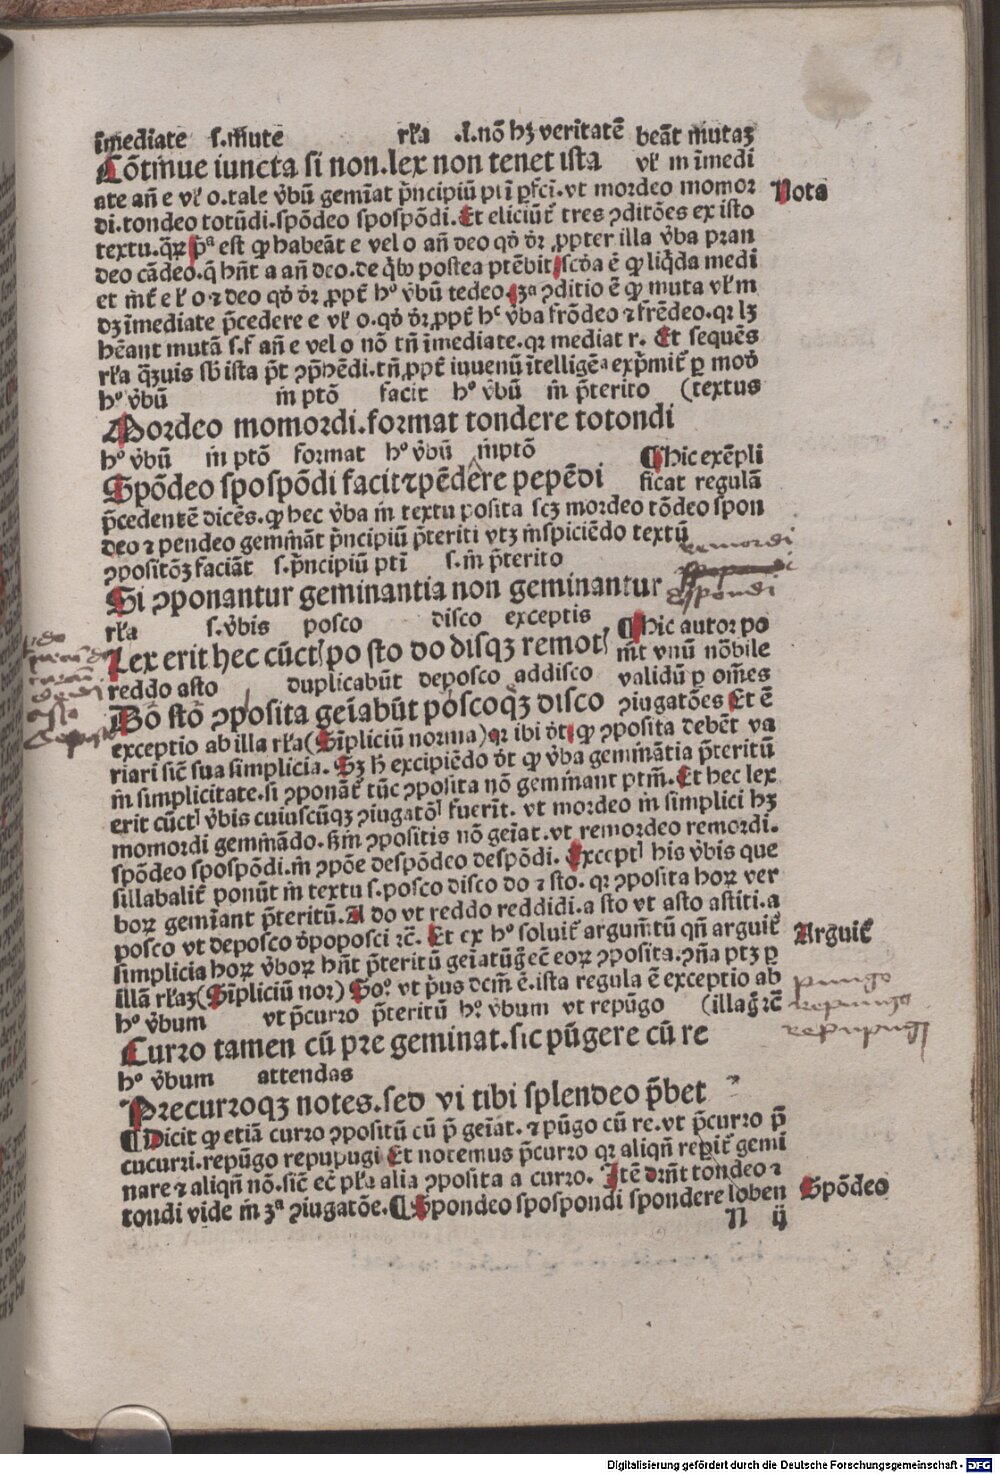 īmediate s.m̄ute rl̓a .l.nō hꝫ veritatē beāt mutaꝫ
Cōtinue iuncta si non.lex non tenet ista vl̓ m īmedi
ate añ e vl̓ o.tale v̓bū gemīat p̄ncipiū p̄ti p̄fci.vt mordeo momor
di.tondeo totūdi.spōdeo spospōdi.Et eliciūt̓ tres ꝯditōes ex isto
textu.q̄ꝝ pͣ est ꝙ habeāt e vel o añ deo qd̓ d̓r ꝓpter illa v̓ba pran
deo cādeo.q̄ hñt a añ deo.de qͥb postea ptēbit scd̓a ē ꝙ liqͥda medi
et m̄t̓ e l̓ o ⁊ deo qd̓ d̓r ꝓpt̓ hͦ v̓bū tedeo.3ͣ ꝯditio ē ꝙ muta vl̓ m
dꝫ īmediate p̄cedere e vl̓ o.qd̓ d̓r ꝓpt̓ hͨ v̓ba frōdeo ⁊ frēdeo.qꝛ lꝫ
hēant mutā s.f añ e vel o nō tñ īmediate.qꝛ mediat r. Et sequēs
rl̓a qͣꝫuis sb̓ ista p̄t ꝯp̄hēdi.tñ ꝓpt̓ iuuenū ītelligēͣ exp̄mit̓ ꝑ mod̓
hͦ v̓bū m̄ ptō facit hͦ v̓bū m̄ p̄terito (textus
Mordeo momordi.format tondere totondi
hͦ v̓bū m̄ ptō format hͦ v̓bū m̄ptō ¶hic exēpli
Spōdeo spospōdi facit ⁊ pēdēre pepēdi ficat regulā
p̄cedentē dicēs.ꝙ hec v̓ba m̄ textu posita scꝫ mordeo tōdeo spon
deo ⁊ pendeo gemīnāt p̄ncipiū p̄teriti vtꝫ m̄spiciēdo textū
remordi
ꝯpositōꝫ faciāt s.p̄ncipiū pti s.m̄ p̄terito
Si ꝯponantur geminantia non geminantur
respondi
rl̓a s.v̓bis posco disco exceptis ¶Hic autor po
Lex erit hec cūctꝭ po sto do disqꝫ remotꝭ m̄t vnū nōbile
reddo asto duplicabūt deposco addisco validū ꝑ om̄es
Do sto ꝯposita geīabūt poscoqꝫ disco ꝯiugatōes Et ē
exceptio ab illa rl̓a(Sīpliciū norma)qꝛ ibi d̓t ꝙ ꝯposita debēt va
riari sic̄ sua simplicia. Sꝫ h̄ excipiēdo d̓t ꝙ v̓ba gemīnātia p̄teritū
m̄ simplicitate.si ꝯponāt̓ tūc ꝯposita nō gemīnant ptm̄.Et hec lex
erit cūctꝭ v̓bis cuiuscūqꝫ ꝯiugatōꝭ fuerīt. vt mordeo m̄ simplici hꝫ
momordi gemīnādo.ſꝫ m̄ ꝯpositis nō geīat.vt remordeo remordi.
spōdeo spospōdi.m̄ ꝯpōe despōdeo despōdi. Exceptꝭ his v̓bis que
sillabalit̓ ponūt m̄ textu s.posco disco do ⁊ sto. qꝛ ꝯposita hoꝝ ver
boꝝ gemīant p̄teritū.A do vt reddo reddidi.a sto vt asto astiti.a
posco vt deposco d̓poposci ⁊c̄. Et ex hͦ soluit̓ argum̄tū qñ arguit̓ Arguit̓
simplicia hoꝝ v̓boꝝ hñt p̄teritū geīatū g̊ ec̄ eoꝝ ꝯposita.ꝯña ptꝫ ꝑ
illā rl̓aꝫ(Sīpliciū nor) Soͦ. vt p̄us dcm̄ ē.ista regula ē exceptio ab
hͦ v̓bum vt p̄curro p̄teritū hͦ v̓bum vt repūgo (illa g̊ ⁊c̄
pungo
repungo
repupugi
Curro tamen cū pre geminat.sic pūgere cū re
hͦ v̓bum attendas
Precurroqꝫ notes.sed vi tibi splendeo p̄bet
¶Dicit ꝙ etiā curro ꝯpositū cū p̄ geīat. ⁊ pūgo cū re.vt p̄curro p̄
cucurri.repūgo repupugi Et notemus p̄curro qꝛ aliqñ reꝑit̓ gemi
nare ⁊ aliqñ nō.sic̄ ec̄ pl̓a alia ꝯposita a curro. Itē d̓rn̄t tondeo ⁊
tondi vide m̄ 3ͣ ꝯiugatōe.¶Spondeo spospondi spondere loben Spōdeo
n ij
Nota
Digitalisierung gefördert durch die Deutsche Forschungsgemeinschaft - DFG